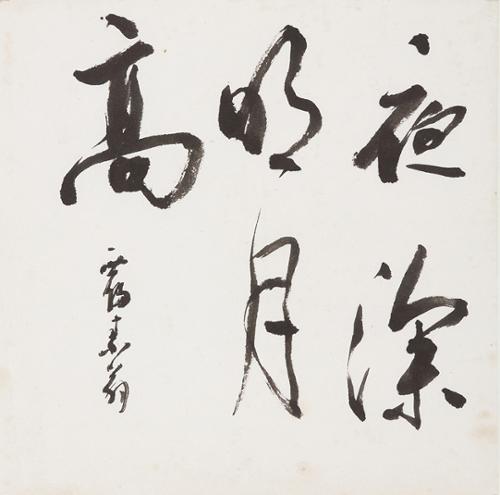 夜深
明月
高